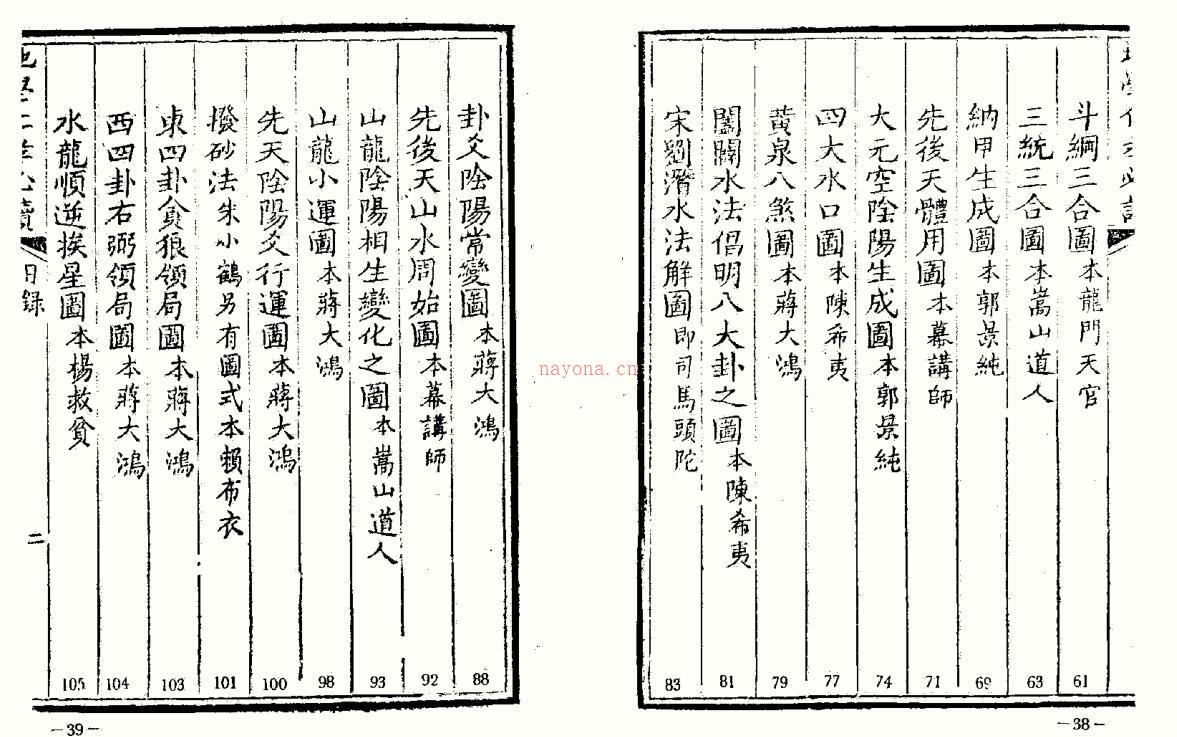 斗綱三合圖本龍門天官 61
三統三合圖本嵩山道人 63
納甲生成圖本郭景純 69
先後天體用圖本幕講師 71
大元空陰陽生成圖本郭景純 74
四大水口圖本陳希夷 77
黃泉八煞圖本蔣大鴻 79
闔闢水法倡明八大卦之圖本陳希夷 81
宋劉潛水法解圖即司馬頭陀 83
—38—
卦爻陰陽常變圖本蔣大鴻 88
先後天山水周始圖本幕講師 92
山龍陰陽相生變化之圖本嵩山道人 93
山龍小運圖本蔣大鴻 98
先天陰陽爻行運圖本蔣大鴻 100
撥砂法朱小鶴另有圖式本賴布衣 101
東四卦貪狼領局圖本蔣大鴻 103
西四卦右弼領局圖本蔣大鴻 104
水龍順逆挨星圖本楊救貧 105
目録 二
—39—
nayona.cn